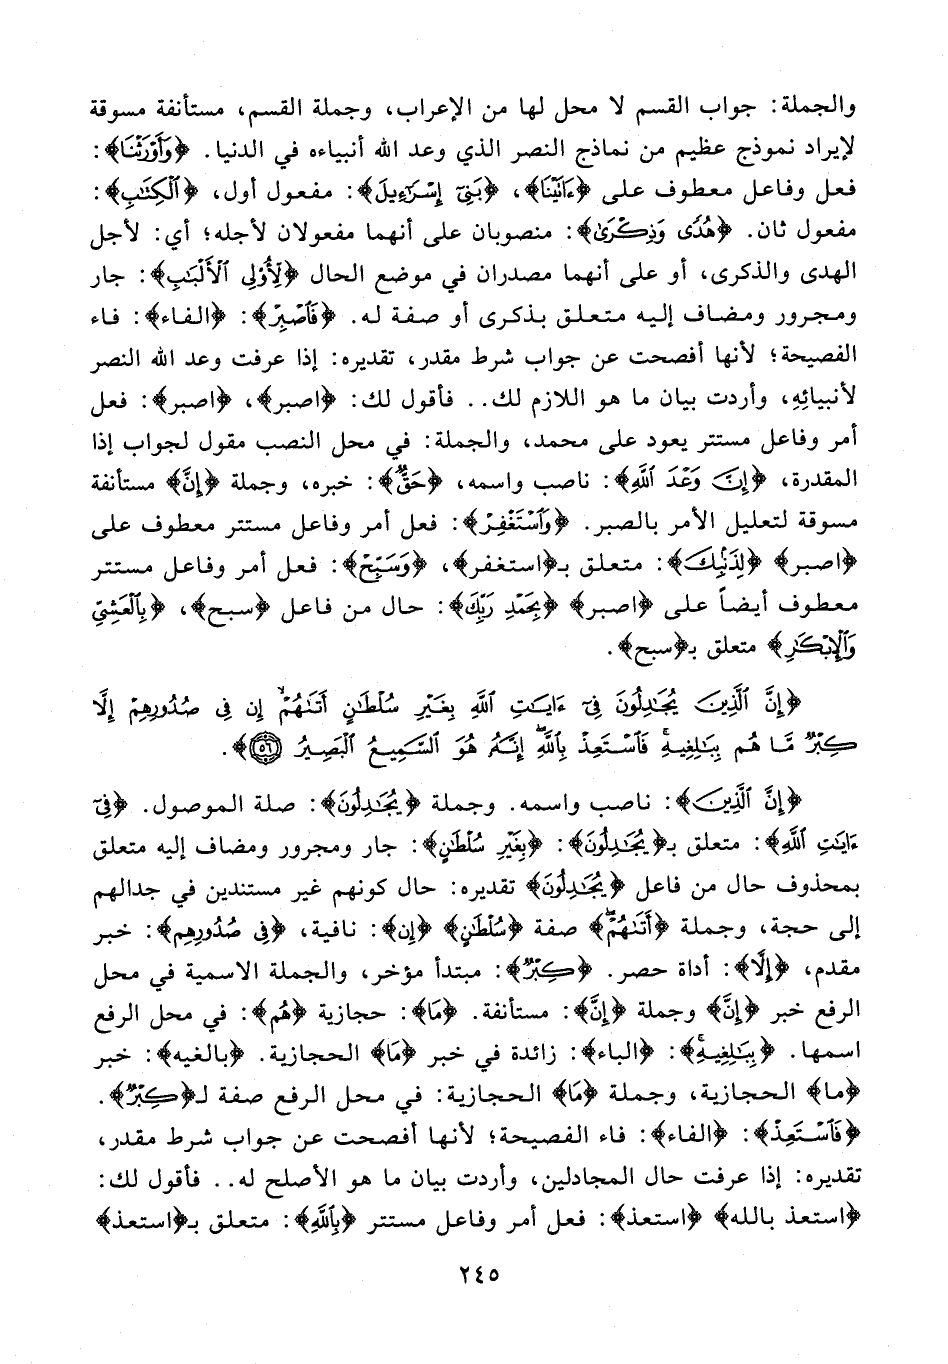 والجملة: جواب القسم لا محل لها من الإعراب، وجملة القسم، مستأنفة مسوقة
لإيراد نموذج عظيم من نماذج النصر الذي وعد الله أنبياءه في الدنيا. ﴿وَأَوْرَثْنَا﴾:
فعل وفاعل معطوف على ﴿ءَاتَيْنَا﴾، ﴿بَنِىٓ إِسْرَٰٓءِيلَ﴾: مفعول أول، ﴿ٱلْكِتَٰبِ﴾:
مفعول ثان. ﴿هُدًى وَذِكْرَىٰ﴾: منصوبان على أنهما مفعولان لأجله؛ أي: لأجل
الهدى والذكرى، أو على أنهما مصدران في موضع الحال ﴿لِأُو۟لِى ٱلْأَلْبَٰبِ﴾: جار
ومجرور ومضاف إليه متعلق بذكرى أو صفة له. ﴿فَٱصْبِرْ﴾: ﴿الفاء﴾: فاء
الفصيحة؛ لأنها أفصحت عن جواب شرط مقدر، تقديره: إذا عرفت وعد الله النصر
لأنبيائِهِ، وأردت بيان ما هو اللازم لك.. فأقول لك: ﴿اصبر﴾، ﴿اصبر﴾: فعل
أمر وفاعل مستتر يعود على محمد، والجملة: في محل النصب مقول لجواب إذا
المقدرة، ﴿إِنَّ وَعْدَ ٱللَّهِ﴾: ناصب واسمه، ﴿حَقٌّ﴾: خبره، وجملة ﴿إِنَّ﴾ مستأنفة
مسوقة لتعليل الأمر بالصبر. ﴿وَٱسْتَغْفِرْ﴾: فعل أمر وفاعل مستتر معطوف على
﴿اصبر﴾ ﴿لِذَنۢبِكَ﴾: متعلق بـ﴿استغفر﴾، ﴿وَسَبِّحْ﴾: فعل أمر وفاعل مستتر
معطوف أيضاً على ﴿اصبر﴾ ﴿بِحَمْدِ رَبِّكَ﴾: حال من فاعل ﴿سبح﴾، ﴿بِٱلْعَشِىِّ
وَٱلْإِبْكَٰرِ﴾ متعلق بـ﴿سبح﴾.
﴿إِنَّ ٱلَّذِينَ يُجَٰدِلُونَ فِىٓ ءَايَٰتِ ٱللَّهِ بِغَيْرِ سُلْطَٰنٍ أَتَىٰهُمْ ۙ إِن فِى صُدُورِهِمْ إِلَّا
كِبْرٌ مَّا هُم بِبَٰلِغِيهِ ۚ فَٱسْتَعِذْ بِٱللَّهِ ۖ إِنَّهُۥ هُوَ ٱلسَّمِيعُ ٱلْبَصِيرُ ٥٦﴾.
﴿إِنَّ ٱلَّذِينَ﴾: ناصب واسمه. وجملة ﴿يُجَٰدِلُونَ﴾: صلة الموصول. ﴿فِىٓ
ءَايَٰتِ ٱللَّهِ﴾: متعلق بـ﴿يُجَٰدِلُونَ﴾: ﴿بِغَيْرِ سُلْطَٰنٍ﴾: جار ومجرور ومضاف إليه متعلق
بمحذوف حال من فاعل ﴿يُجَٰدِلُونَ﴾ تقديره: حال كونهم غير مستندين في جدالهم
إلى حجة، وجملة ﴿أَتَىٰهُمْ ۙ﴾ صفة ﴿سُلْطَٰنٍ﴾ ﴿إِن﴾: نافية، ﴿فِى صُدُورِهِم﴾: خبر
مقدم، ﴿إِلَّا﴾: أداة حصر. ﴿كِبْرٌ﴾: مبتدأ مؤخر، والجملة الاسمية في محل
الرفع خبر ﴿إِنَّ﴾ وجملة ﴿إِنَّ﴾: مستأنفة. ﴿مَا﴾: حجازية ﴿هُم﴾: في محل الرفع
اسمها. ﴿بِبَٰلِغِيهِ ۚ﴾: ﴿الباء﴾: زائدة في خبر ﴿مَا﴾ الحجازية. ﴿بالغيه﴾: خبر
﴿ما﴾ الحجازية، وجملة ﴿مَا﴾ الحجازية: في محل الرفع صفة لـ﴿كِبْرٌ﴾.
﴿فَٱسْتَعِذْ﴾: ﴿الفاء﴾: فاء الفصيحة؛ لأنها أفصحت عن جواب شرط مقدر،
تقديره: إذا عرفت حال المجادلين، وأردت بيان ما هو الأصلح له.. فأقول لك:
﴿استعذ بالله﴾ ﴿استعذ﴾: فعل أمر وفاعل مستتر ﴿بِٱللَّهِ﴾: متعلق بـ﴿استعذ﴾
٢٤٥